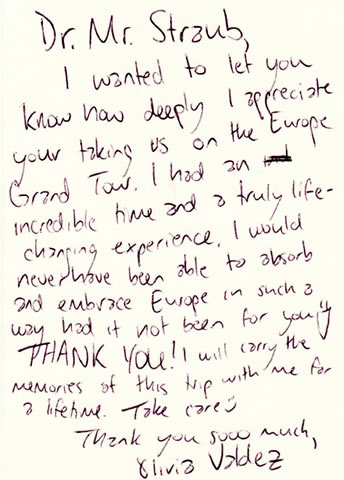 Dr. Mr. Straub,
I wanted to let you
know how deeply I appreciate
your taking us on the Europe
Grand Tour. I had an
incredible time and a truly life-
changing experience. I would
never have been able to absorb
and embrace Europe in such a
way had it not been for you!
THANK YOU! I will carry the
memories of this trip with me for
a lifetime. Take care
Thank you sooo much,
Olivia Valdez